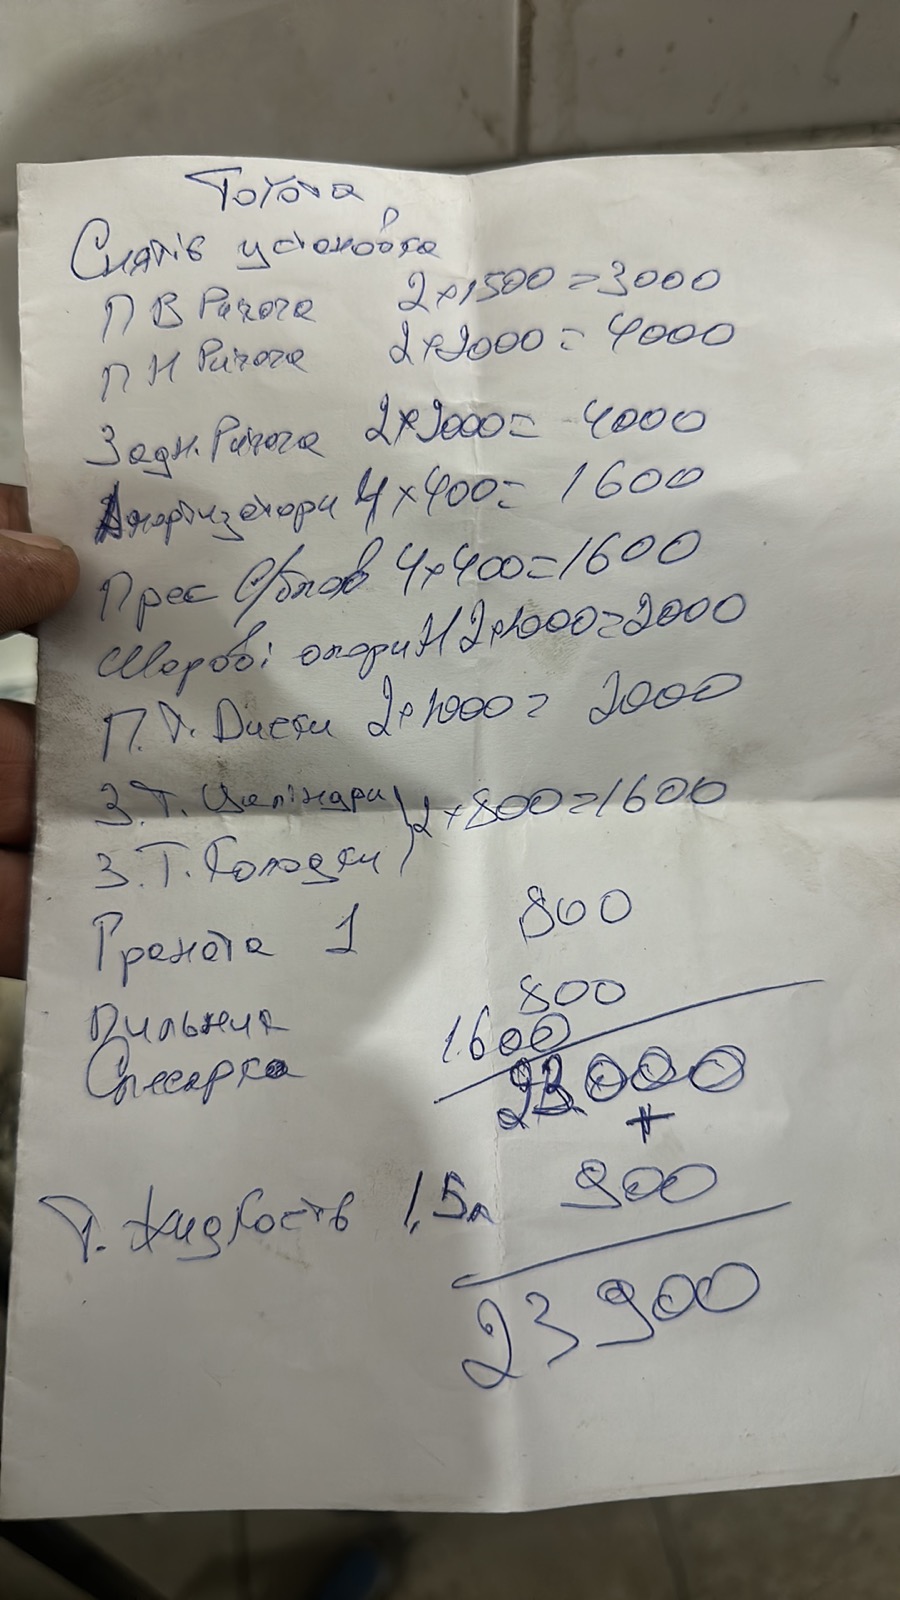 Тойота
Сняття установка
П В Ричага 2×1500=3000
П Н Ричага 2×2000= 4000
Задн. Ричага 2×2000= 4000
Амортизатори 4×400= 1600
Прес С/блоків 4×400=1600
Шарові опори Н 2×1000=2000
П.Т. Диски 2×1000= 2000
З.Т. Циліндри } 2×800=1600
З.Т. Колодки
Граната 1 800
Пильник 800
Слесарка 1600
23000
+
Т. Жидкость 1,5л 900
23900